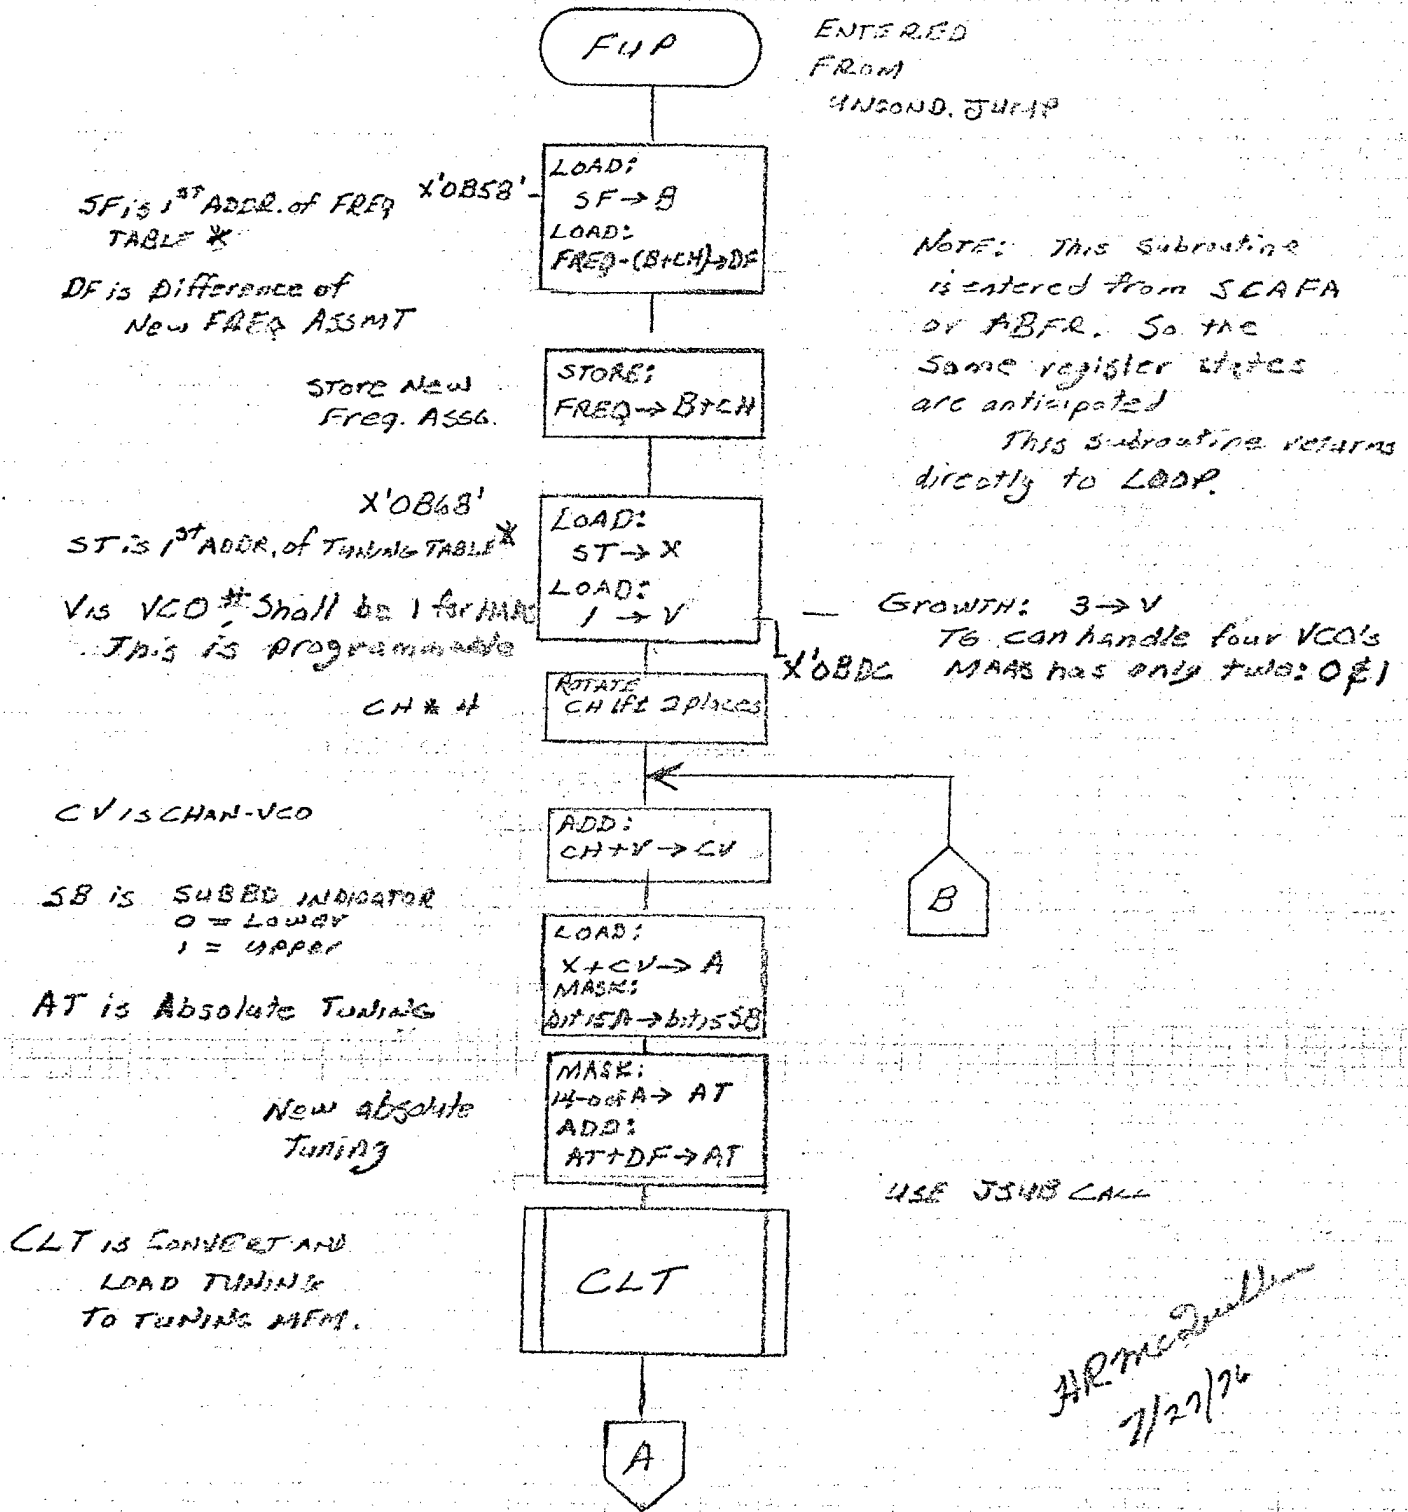 FUP
ENTERED
FROM
UNCOND. JUMP
SF is 1ST ADDR. of FREQ
TABLE *
X'0B58'
LOAD:
SF → B
LOAD:
FREQ-(B+CH)→DF
DF is Difference of
New FREQ ASSMT
NOTE: This Subroutine
is entered from SCAFA
or ABFR. So the
Same register states
are anticipated
This subroutine returns
directly to LOOP.
Store New
Freq. ASSG.
STORE:
FREQ → B+CH
X'0B68'
ST is 1st ADDR. of TUNING TABLE *
LOAD:
ST → X
LOAD:
1 → V
V is VCO #. Shall be 1 for
This is programmable
X'0BDC
GROWTH: 3 → V
TG can handle four VCO's
MAAS has only two: 0 & 1
CH * 4
ROTATE
CH lft 2 places
CV is CHAN-VCO
ADD:
CH+V → CV
B
SB is SUBBD INDICATOR
0 = Lower
1 = Upper
LOAD:
X+CV → A
MASK:
bit 15A → bit 15SB
AT is Absolute TUNING
New absolute
Tuning
MASK:
14-0 of A → AT
ADD:
AT+DF → AT
USE JSUB CALL
CLT is CONVERT AND
LOAD TUNING
TO TUNING MEM.
CLT
HR McQuillen
7/27/76
A